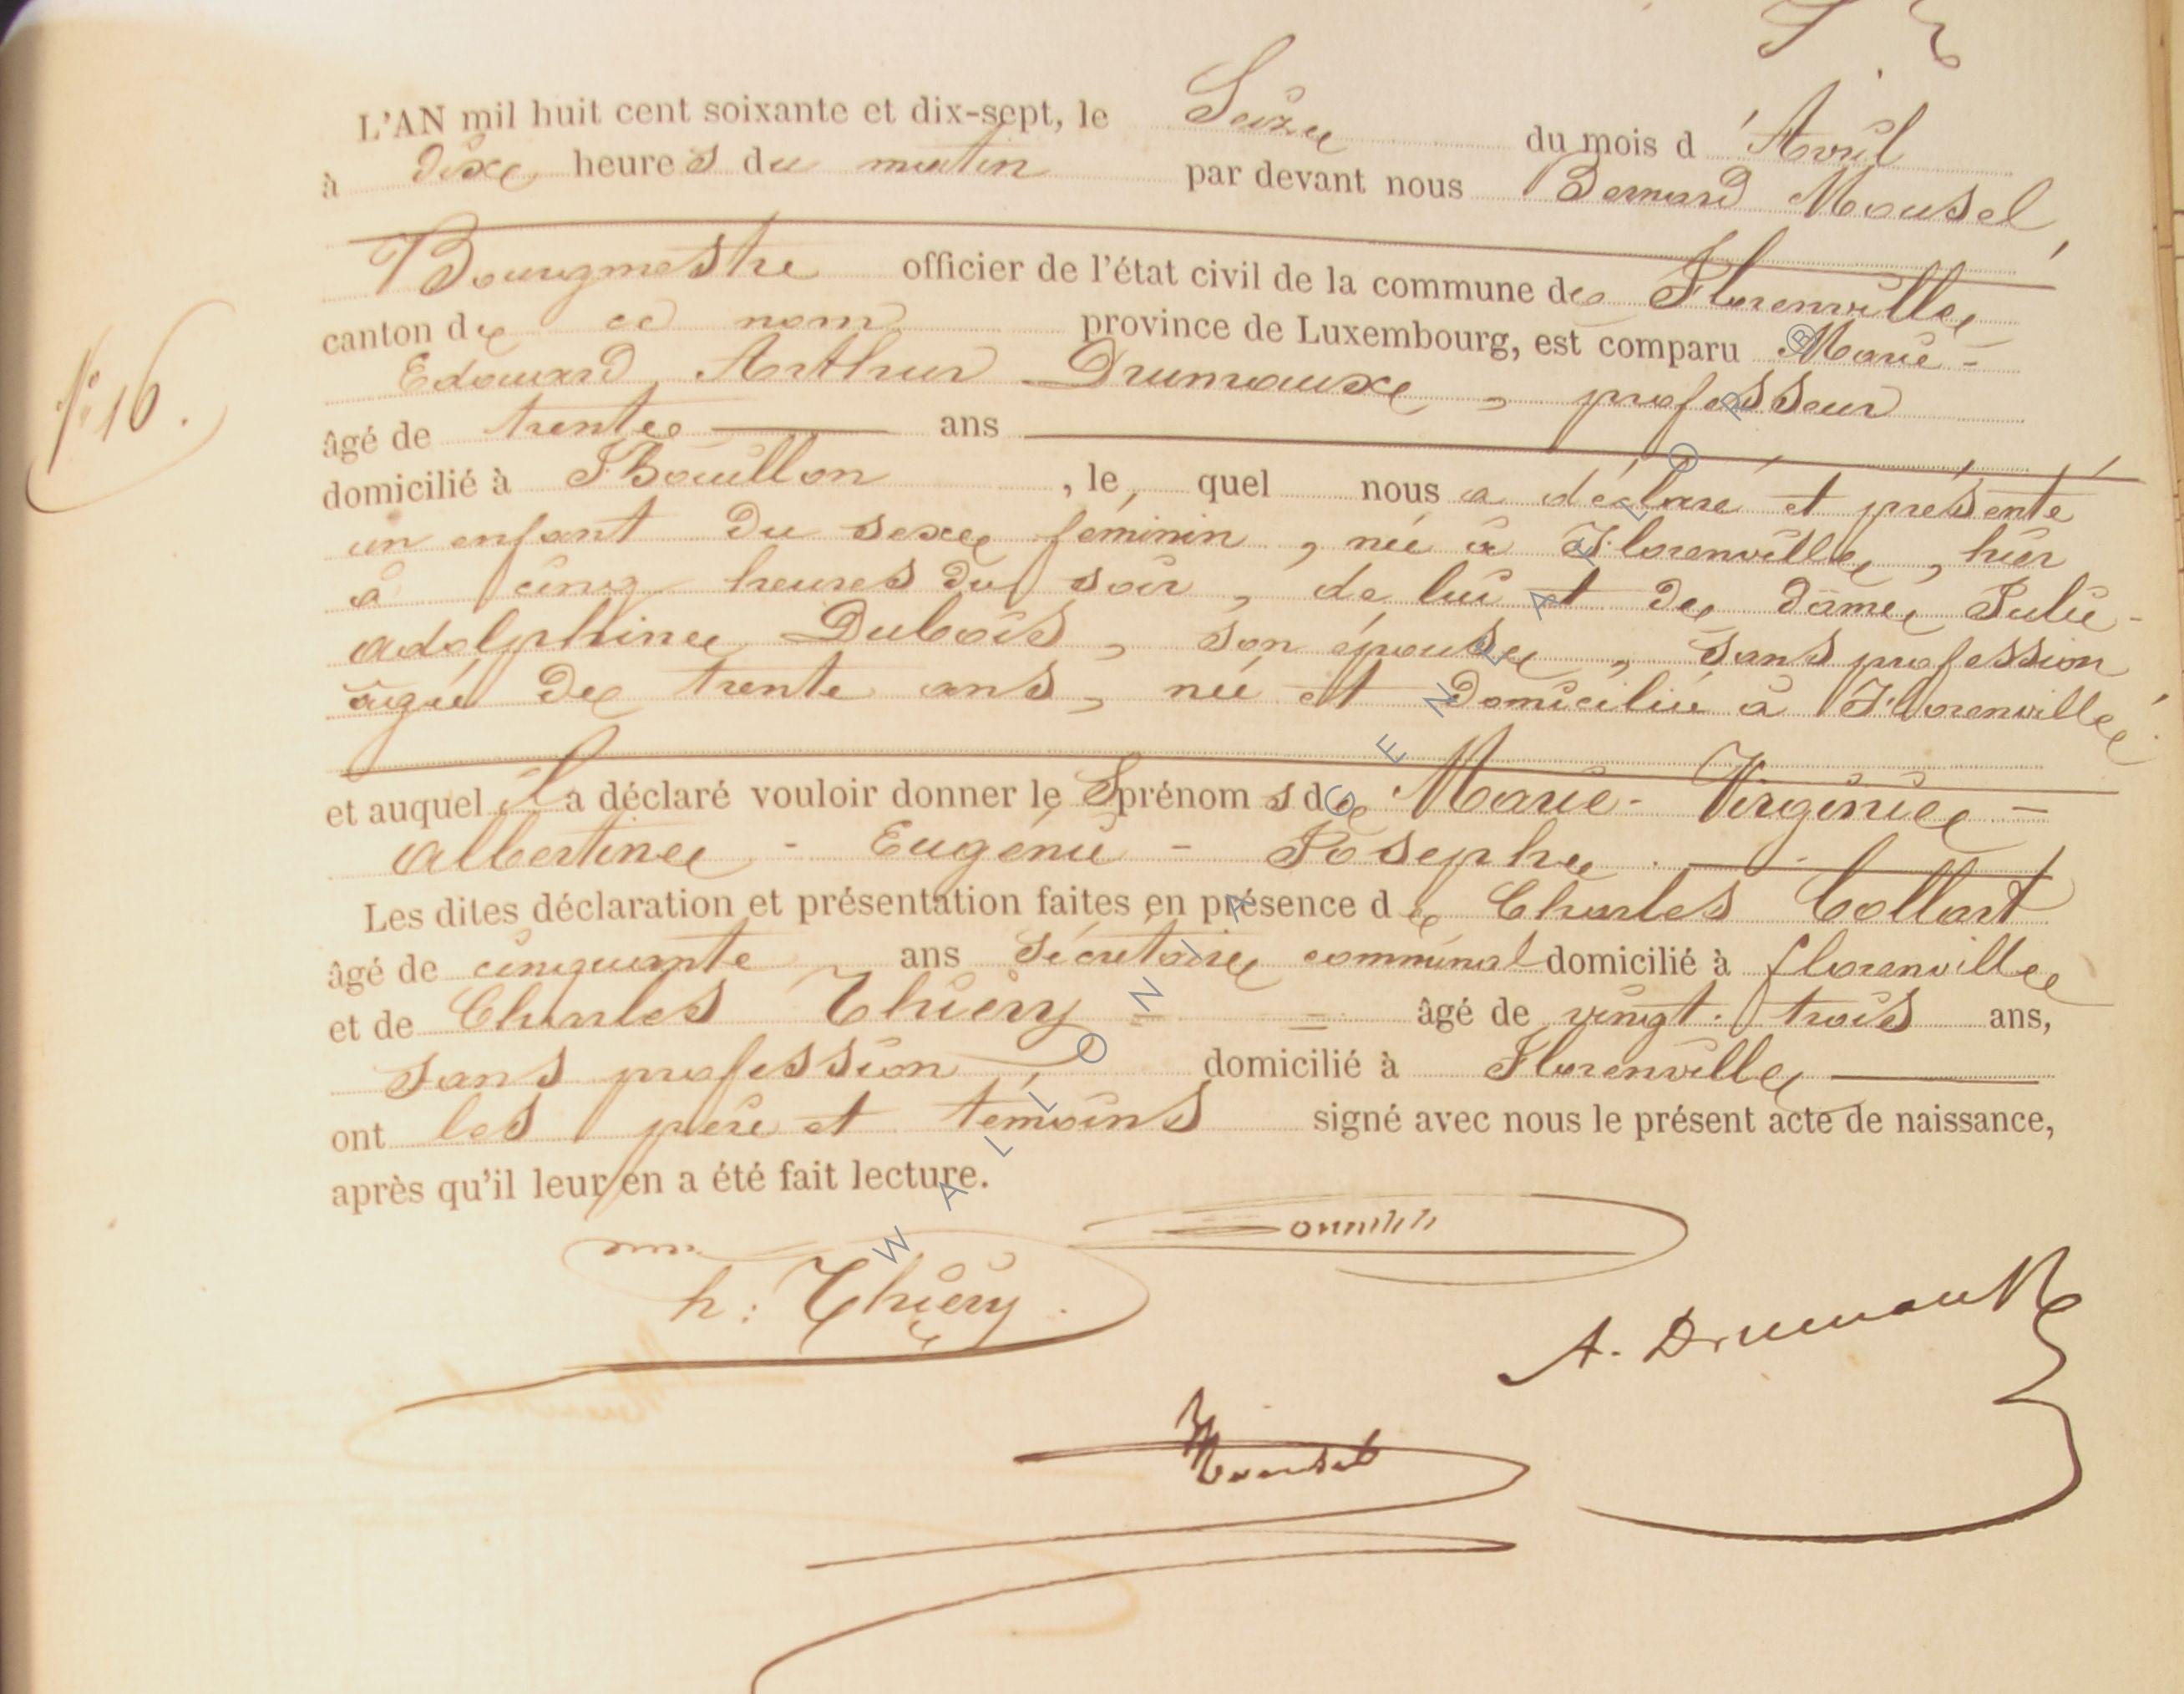 L'AN mil huit cent soixante et dix-sept, le Seize du mois d'Avril
à dix heures du matin par devant nous Bernard Mousel,
Bourgmestre officier de l'état civil de la commune de Florenville
canton de ce nom province de Luxembourg, est comparu Marie-
Edouard, Arthur Drumaux, professeur
N° 16.
âgé de trente ans
domicilié à Bouillon, le quel nous a déclaré et présenté
un enfant du sexe féminin, née à Florenville, hier
à cinq heures du soir, de lui et de dame Julie-
adolphine Dubois, son épouse, sans profession
agée de trente ans, née et domiciliée à Florenville
et auquel il a déclaré vouloir donner les prénoms de Marie-Virginie-
albertine-Eugénie-Josephe.
Les dites déclaration et présentation faites en présence de Charles Collart
âgé de cinquante ans sécrétaire communal domicilié à florenville
et de Charles Thiéry = = âgé de vingt-trois ans,
sans profession, domicilié à Florenville
ont les père et témoins signé avec nous le présent acte de naissance,
après qu'il leur en a été fait lecture.
h: Thiéry
A. Drumaux
Mousel
WALLONIA GENEALOR®